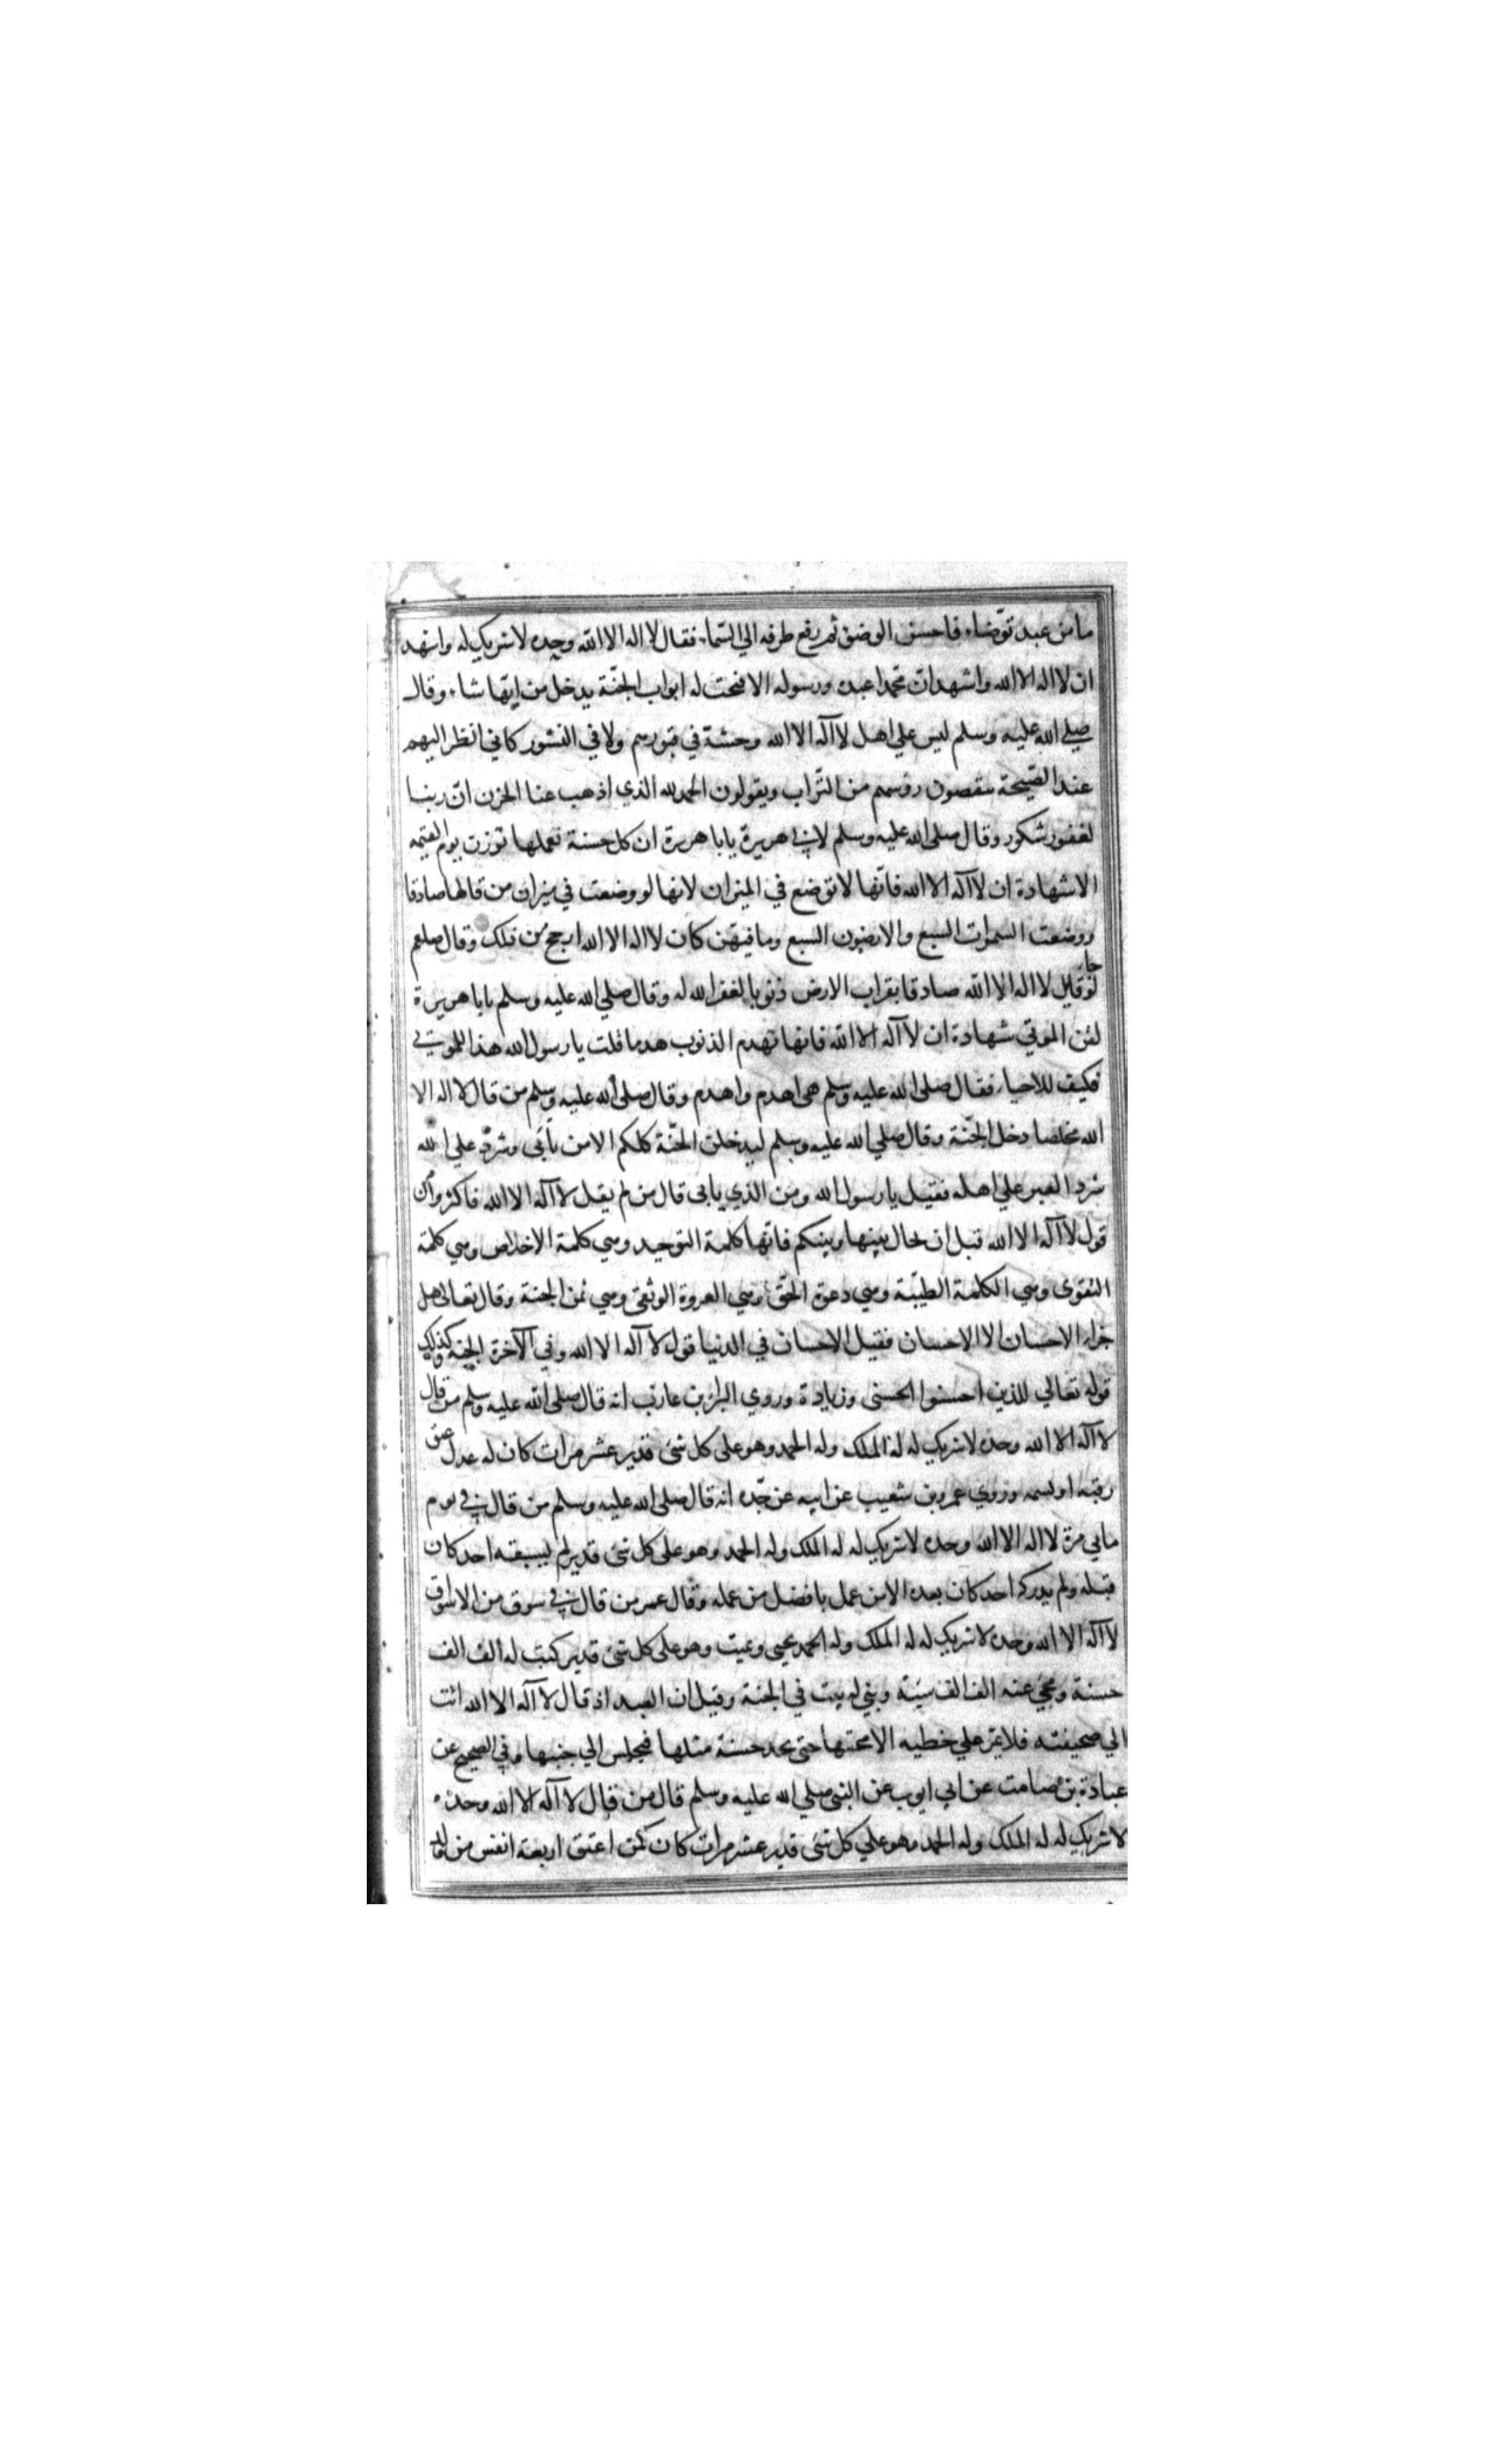 ما من عبد توضاء فاحسن الوضؤ ثم رفع طرفه الي السماء فقال لا اله الا الله وحده لا شريك له واشهد
ان لا اله الا الله واشهد ان محمدا عبده ورسوله الا فتحت له ابواب الجنّة يدخل من ايّها شاء وقال
صلي الله عليه وسلم ليس علي اهل لا آله الا الله وحشة في قبورهم ولا في النشور كاني انظر اليهم
عند الصّيحة ينفضون رؤسهم من التّراب ويقولون الحمد لله الذي اذهب عنا الحزن انّ ربنا
لغفور شكور وقال صلى الله عليه وسلم لابي هريرة يابا هريرة ان كل حسنة تعملها توزن يوم القيمه
الا شهادة ان لا آله الا الله فانّها لا توضع في الميزان لانها لو وضعت في ميزان من قالها صادقا
ووضعت السموات السبع والارضون السبع وما فيهّن كان لا اله الا الله ارجح من ذلك وقال صلعم
لو جاء قايل لا اله الا الله صادقا بقراب الارض ذنوبا لغفر الله له وقال صلي الله عليه وسلم يابا هريرة
لقن الموتي شهادة ان لا آله الا الله فانها تهدم الذنوب هدما قلت يا رسول الله هذا للموتي
فكيف للاحياء فقال صلى الله عليه وسلم هى اهدم واهدم وقال صلى الله عليه وسلم من قال لا اله الا
الله مخلصا دخل الجنّة وقال صلي الله عليه وسلم ليدخلن الجنّة كلكم الا من يأبى وشرد علي الله
شرد البعير علي اهله فقيل يا رسول الله ومن الذي يابى قال من لم يقل لا آله الا الله فاكثروا من
قول لا آله الا الله قبل ان يحال بينها وبينكم فانّها كلمة التوحيد وهي كلمة الاخلاص وهي كلمة
التقوى وهي الكلمة الطيّبة وهي دعوة الحقّ وهي العروة الوثقى وهي ثمن الجنة وقال تعالى هل
جزاء الاحسان الا الاحسان فقيل الاحسان في الدنيا قول لا آله الا الله وفي الآخرة الجنة وكذلك
قوله تعالي للذين احسنوا الحسنى وزيادة وروي البراء بن عازب انه قال صلى الله عليه وسلم من قال
لا آله الا الله وحده لا شريك له له الملك وله الحمد وهو على كل شئ قدير عشر مرات كان له عدل عتق
رقبه او نسمه وروي عمرو بن شعيب عن ابيه عن جّده انه قال صلى الله عليه وسلم من قال في يوم
مايي مرة لا اله الا الله وحده لا شريك له له الملك وله الحمد وهو على كل شئ قدير لم يسبقه احد كان
قبله ولم يدركه احد كان بعده الا من عمل بافضل من عمله وقال عمر من قال في سوق من الاسواق
لا آله الا الله وحده لا شريك له له الملك وله الحمد يحيى ويميت وهو على كل شئ قدير كتب له الف الف
حسنة ومحي عنه الف الف سيّئة وبني له بيت في الجنة وقيل ان العبد اذ قال لا آله الا الله اتت
الي صحيفته فلا تمر علي خطيه الا محتها حتى تجد حسنة مثلها فتجلس الي جنبها وفي الصحيح عن
عبادة بن صامت عن ابي ايوب عن النبى صلي الله عليه وسلم قال من قال لا آله الا الله وحده
لا شريك له له الملك وله الحمد وهو علي كل شئ قدير عشر مرات كان كمن اعتق اربعة انفس من ولد